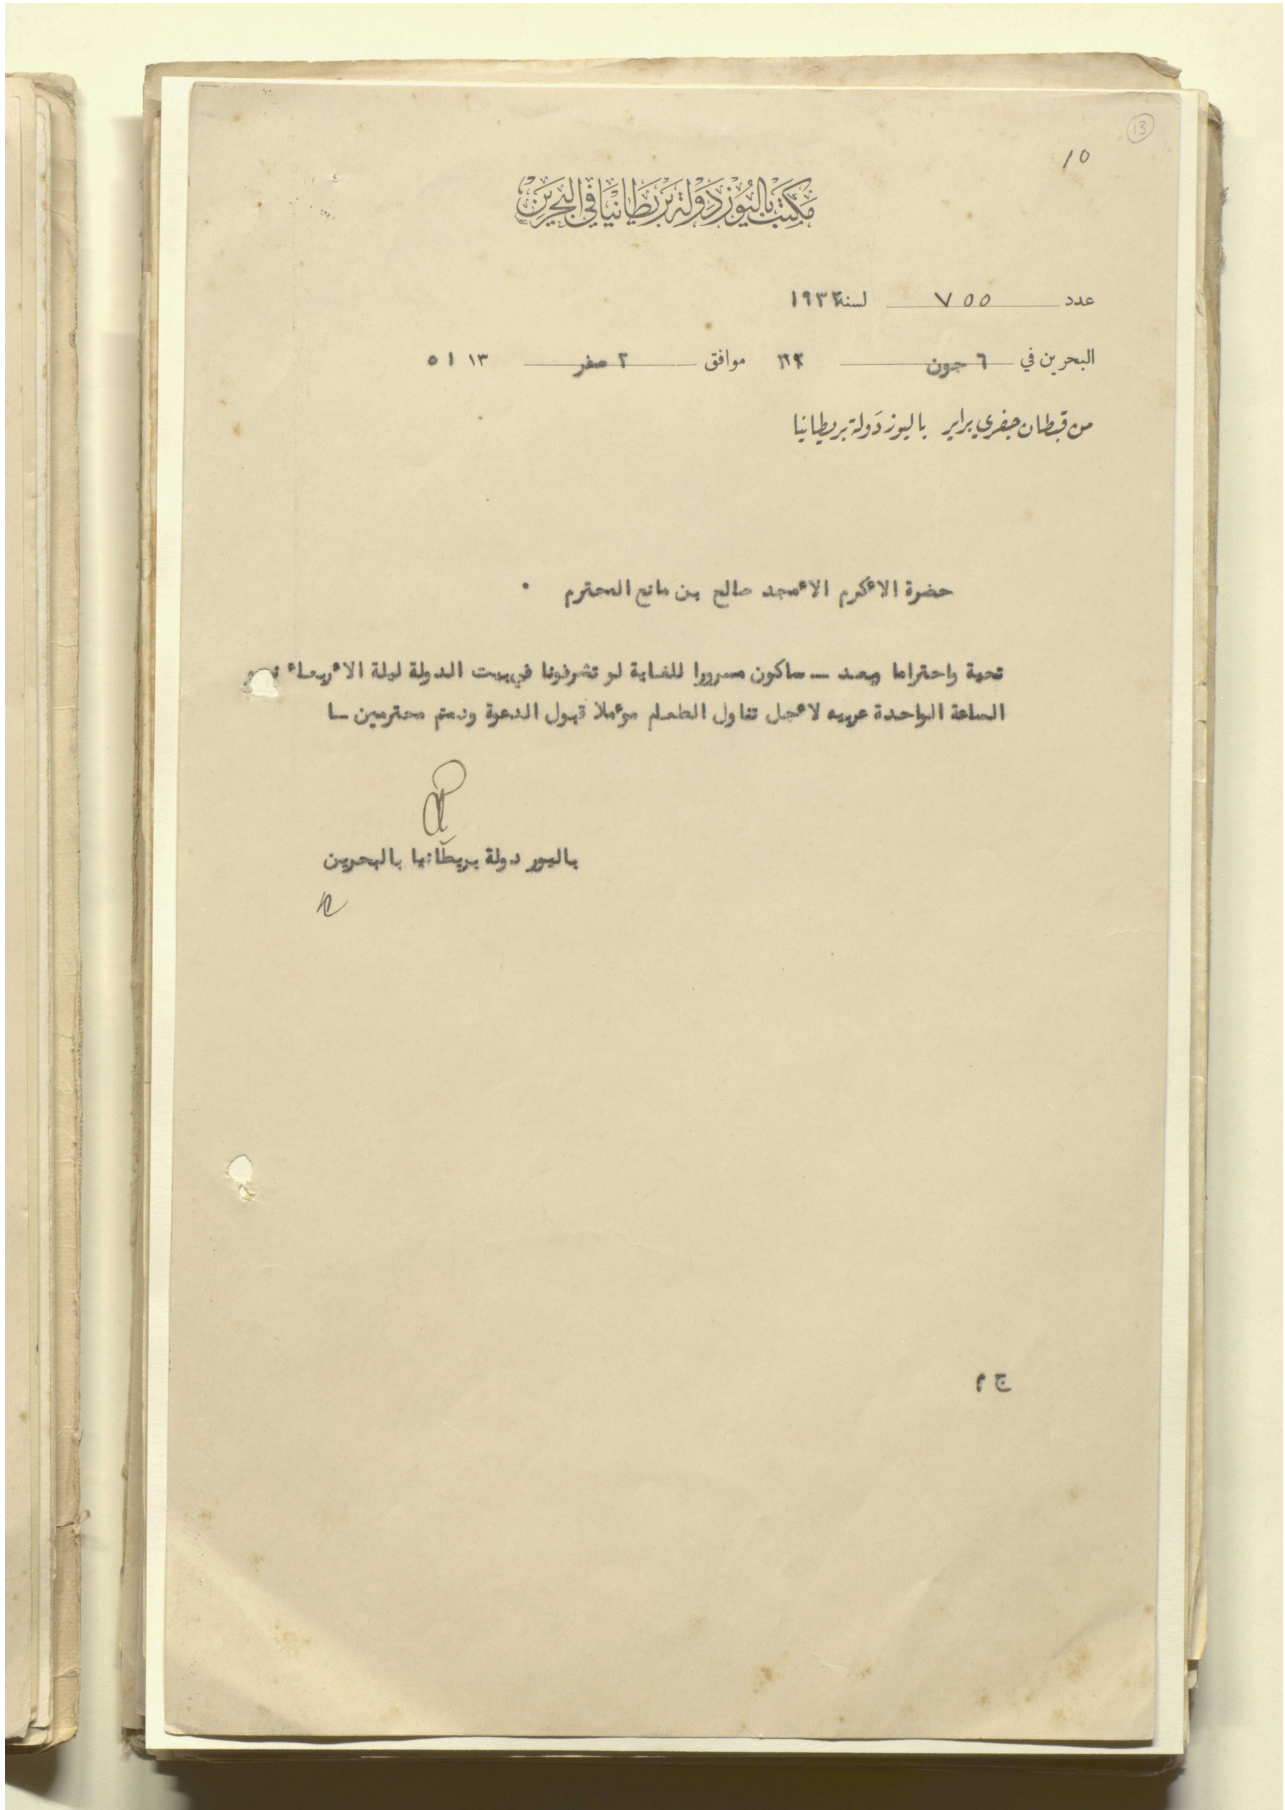 13
١٥
مكتب باليوز دولة بريطانيا في البحرين
عدد ٧٥٥ لسنة ١٩٣٢
البحرين في ٦ جون ٣٢ موافق ٢ صفر ١٣٥١
من قبطان جفري براير باليوز دولة بريطانيا
حضرة الاءكرم الاءمجد صالح بن مانع المحترم .
تحية واحتراما وبعد ــ ساكون مسرورا للغاية لو تشرفونا في بيت الدولة ليلة الاءربعاء
الساعة الواحدة عربيه لاءجل تناول الطعام موءملا قبول الدعوة ودمتم محترمين ــا
باليوز دولة بريطانيا بالبحرين
ج م